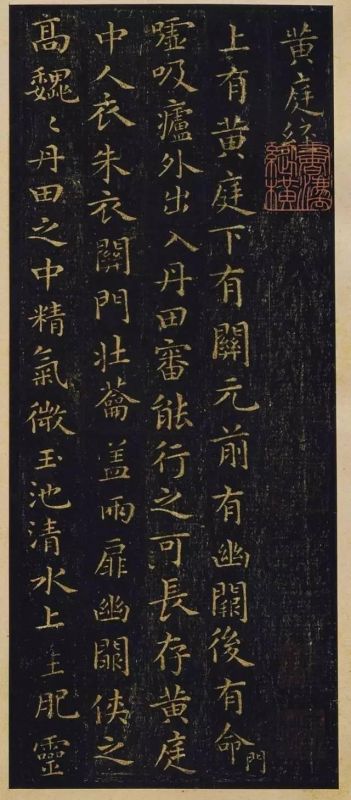 黄庭經
上有黄庭下有關元前有幽闕後有命門
嘘吸廬外出入丹田審能行之可長存黄庭
中人衣朱衣關門壯蘥盖兩扉幽闕俠之
髙巍〻丹田之中精氣微玉池清水上生肥靈